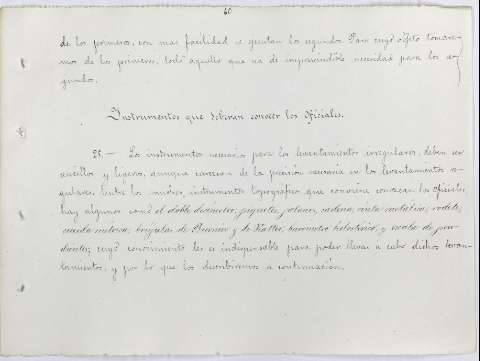 60
de los primeros, con mas facilidad se ejecutan los segundos. Para cuyo objeto tomare-
mos de los primeros, todo aquello que sea de imprescindible necesidad para los se-
gundos.
Instrumentos que deberán conocer los Oficiales.
25 — Los instrumentos necesarios para los levantamientos irregulares, deben ser
sencillos y ligeros, aunque carezcan de la precisión necesaria en los levantamientos re-
gulares. Entre los muchos, instrumentos topográficos que convenia conozcan los Oficiales,
hay algunos como el doble decímetro, piquetes, jalones, cadena, cinta metálica, rodete,
cuerda metrica, brújulas de Burnier y de Katter, barómetro holostérico, y escala de pen-
dientes; cuyo conocimiento les es indispensable para poder llevar a cabo dichos levan-
tamientos, y por lo que los describiremos a continuación.